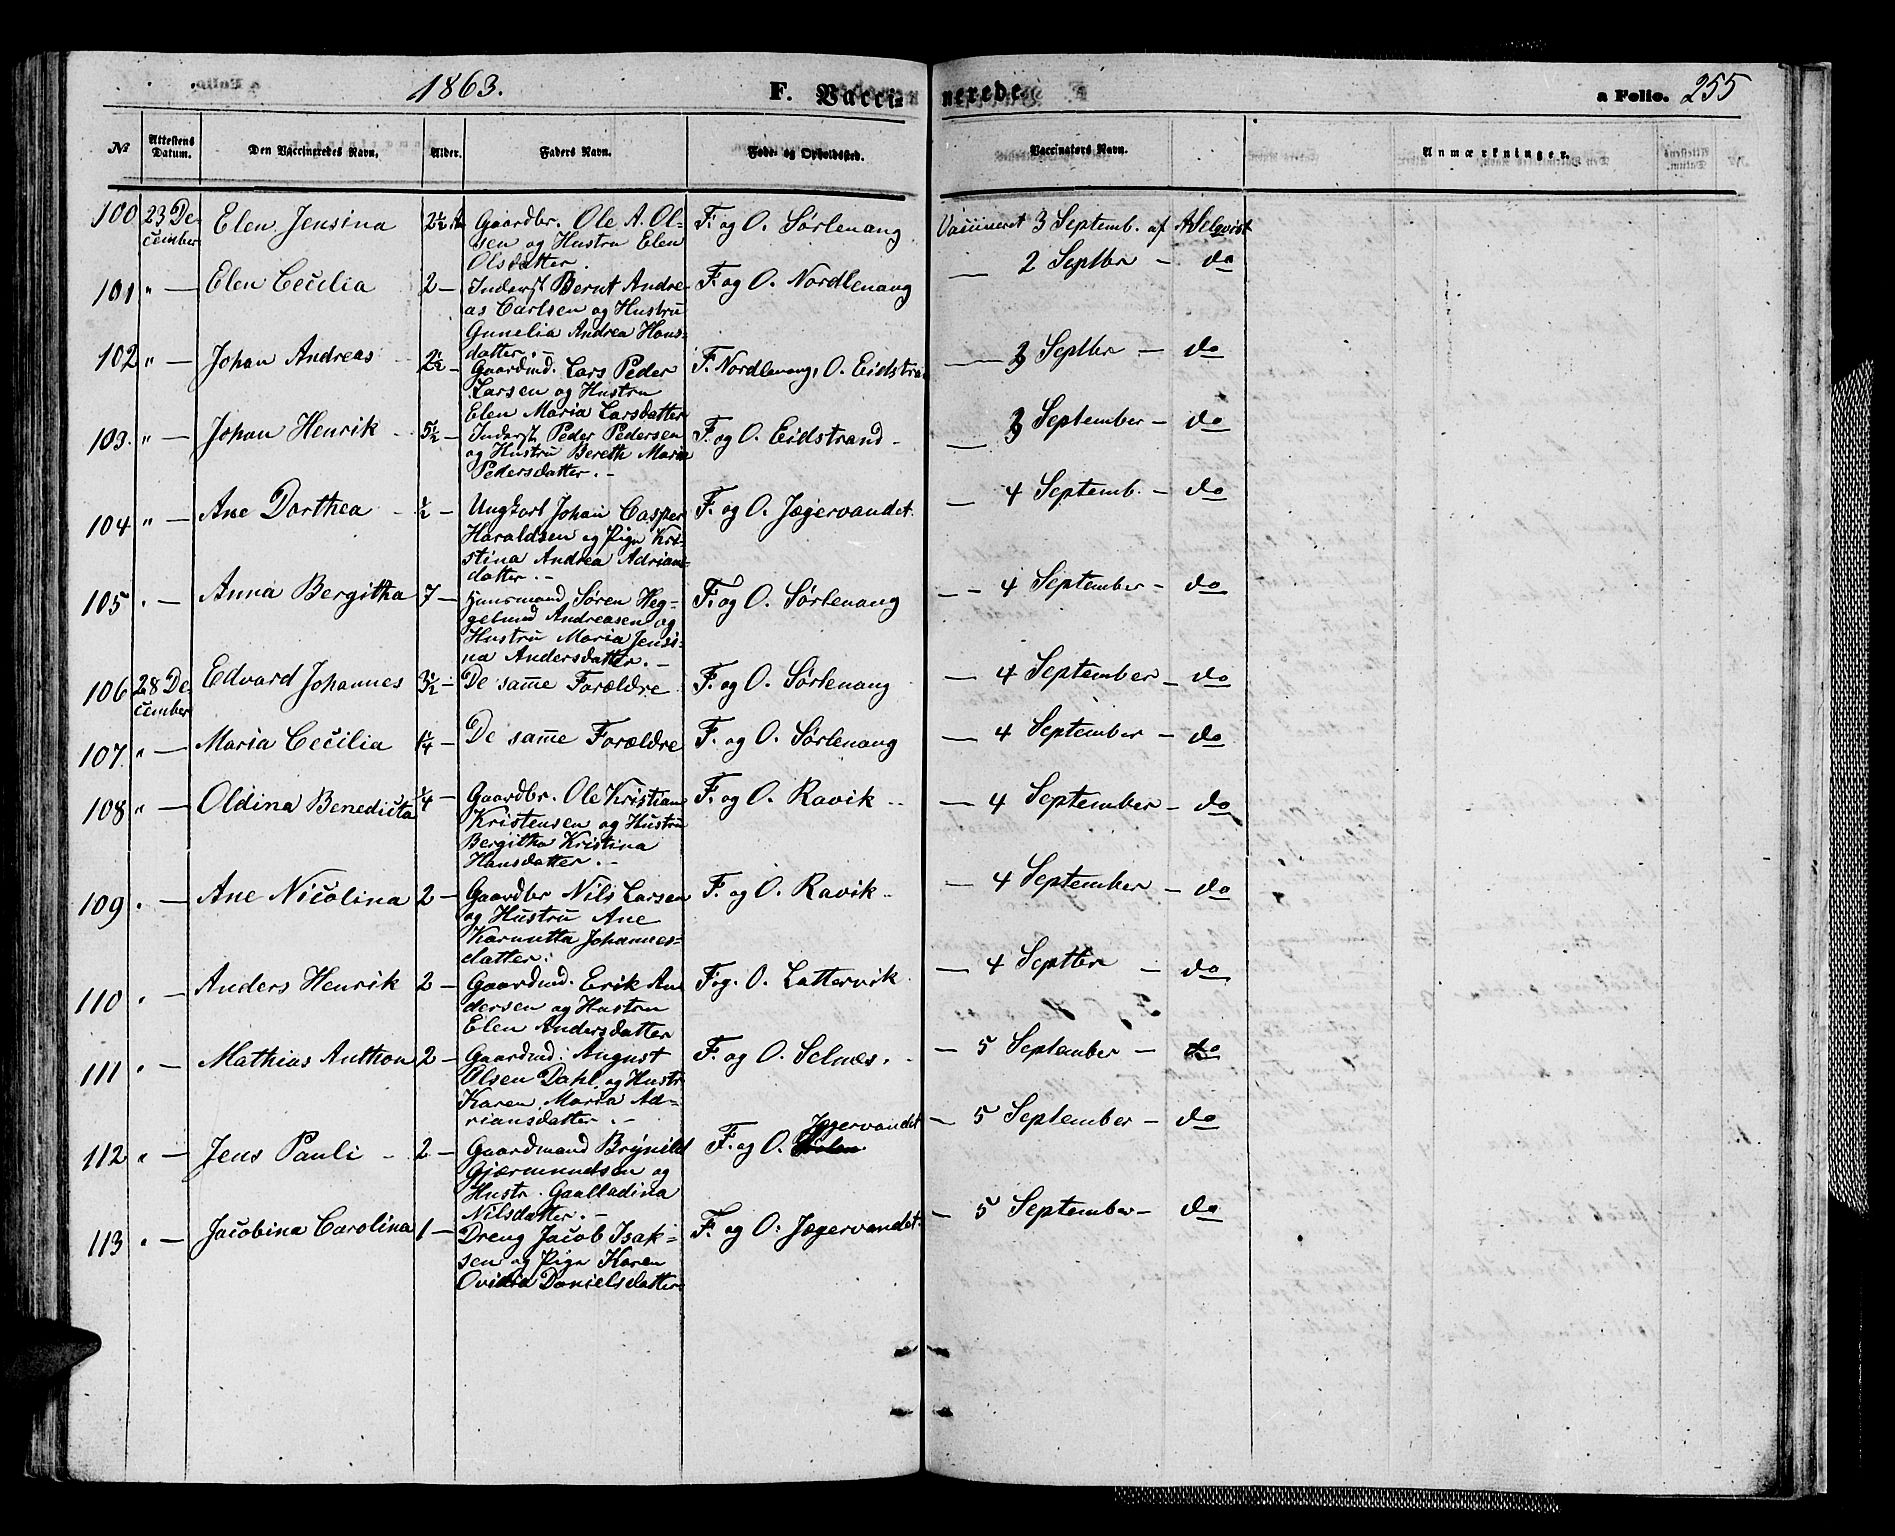 1863. F. Vacci= nerede. a Folio. 255
No Attestens Datum. Den Vaccineredes Navn. Alder. Faders Navn. Føde- og Opholdsted. Vaccinators Navn. Anmærkninger.
100 23 De Elen Jensina 2½ A Gaardbr. Ole A. Ol- F. og O. Sørlenang Vaccineret 3 Septemb. af
cember sen og Hustru Elen
Olsdatter.
101 " — Elen Cecilia 2 — Inderst Bernt Andre- F. og O. Nordlenang — 2 Septbr — do
as Carlsen og Hustru
Gunelia Andrea Hans-
datter. —
102 " — Johan Andreas 2½ — Gaardmd. Lars Peder F. Nordlenang, O. Eidstran — 3 Septbr — do
Larsen og Hustru
Elen Maria Larsdatter
103. " — Johan Henrik 5½ — Inderst Peder Pedersen F. og O. Eidstrand — — 3 September — do
og Hustru Bereth Maria
Pedersdatter. —
104 " — Ane Dorthea ½ — Ungkarl Johan Casper F. og O. Jægervandet — 4 Septemb. — do
Haraldsen og Pige Kri-
stina Andrea Adrians-
datter. —
105 " — Anna Bergitha 7 — Huusmand Søren Heg- F. og O. Sørlenang — 4 September — do
gelund Andreasen og
Hustru Maria Jensi-
na Andersdatter. —
106 28 De Edvard Johannes 3½ — De samme Forældre F. og O. Sørlenang — 4 September — do
cember
107. " — Maria Cecilia ¼ — De samme Forældre F. og O. Sørlenang — 4 September — do
108 " — Oldina Benedicta ¼ — Gaardbr. Ole Kristian F. og O. Ravik — 4 September — do
Kristensen og Hustru
Bergitha Kristina
Hansdatter. —
109 " — Ane Nicolina 2 — Gaardbr Nils Larsen F. og O. Ravik — 4 September — do
og Hustru Ane
Karnutta Johannes-
datter.
110 " — Anders Henrik 2 — Gaardmd. Erik An F. og. O. Lattervik — 4 Septbr — do
dersen og Hustru
Elen Andersdatter
111 " — Mathias Anthon 2 — Gaardmd. August F. og O. Selnes. — 5 September — do
Olsen Dahl og Hustr
Karen Maria Ad-
riansdatter. —
112 " — Jens Pauli — 2 — Gaardmand Brynild F. og O. Jægervandet — 5 September — do
Gjærmundsen og
Hustr. Gaalladina
Nilsdatter. —
113 " — Jacobina Carolina 1 — Dreng Jacob Isak- F. og O. Jægervandet — 5 September — do
sen og Pige Karen
Ovidia Danielsdatter